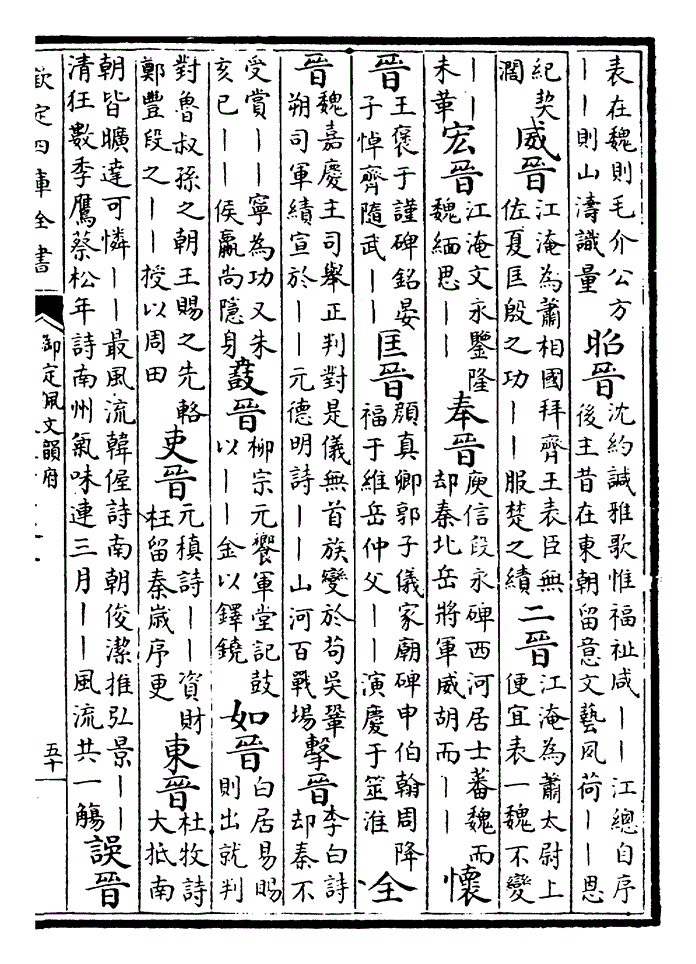 表在魏則毛介公方
——則山濤識量
昭晉
沈約諴雅歌惟福祉咸——江總自序
後主昔在東朝留意文藝夙荷——恩
紀契
濶
威晉
江淹為蕭相國拜齊王表臣無
佐夏匡殷之功——服楚之績
二晉
江淹為蕭太尉上
便宜表一魏不變
——
未革
宏晉
江淹文永鑒隆
魏緬思——
奉晉
庾信段永碑西河居士蕃魏而
却秦北岳將軍威胡而——
懷
晉
王褒于謹碑銘晏
子悼齊隨武——
匡晉
顔真卿郭子儀家廟碑申伯翰周降
福于維岳仲父——演慶于筮淮
全
晉
魏嘉慶主司舉正判對是儀無首族變於苟吳鞏
朔司軍績宣於——元德明詩——山河百戰場
擊晉
李白詩
却秦不
受賞——寧為功又朱
亥已——侯嬴尚隱身
鼓晉
柳宗元饗軍堂記鼓
以——金以鐸鐃
如晉
白居易賜
則出就判
對魯叔孫之朝王賜之先輅
鄭豐段之——授以周田
吏晉
元稹詩——資財
枉留秦歲序更
東晉
杜牧詩
大抵南
朝皆曠達可憐——最風流韓偓詩南朝俊潔推弘景——
清狂數季鷹蔡松年詩南州氣味連三月——風流共一觴
誤晉
欽定四庫全書
御定佩文韻府
五十